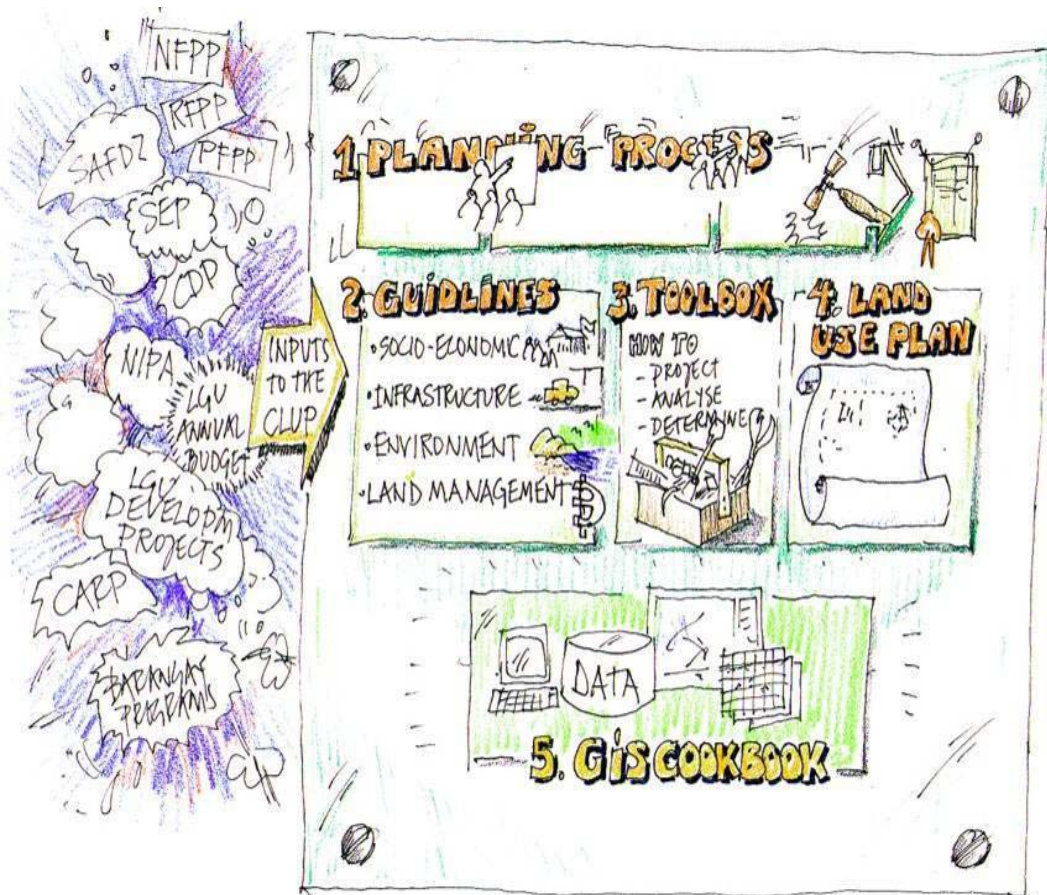 NFPP
RFPP
PFPP
SAFDZ
SEP
CDP
NIPA
LGU
ANNUAL
BUDGET
LGU
DEVELOPM
PROJECTS
CARP
BARANGAY
PROGRAMS
INPUTS
TO THE
CLUP
1. PLANNING PROCESS
2. GUIDLINES
• SOCIO-ECONOMIC
• INFRASTRUCTURE
• ENVIRONMENT
• LAND MANAGEMENT
3. TOOLBOX
HOW TO
- PROJECT
- ANALYSE
- DETERMINE
4. LAND
USE PLAN
DATA
5. GIS COOKBOOK